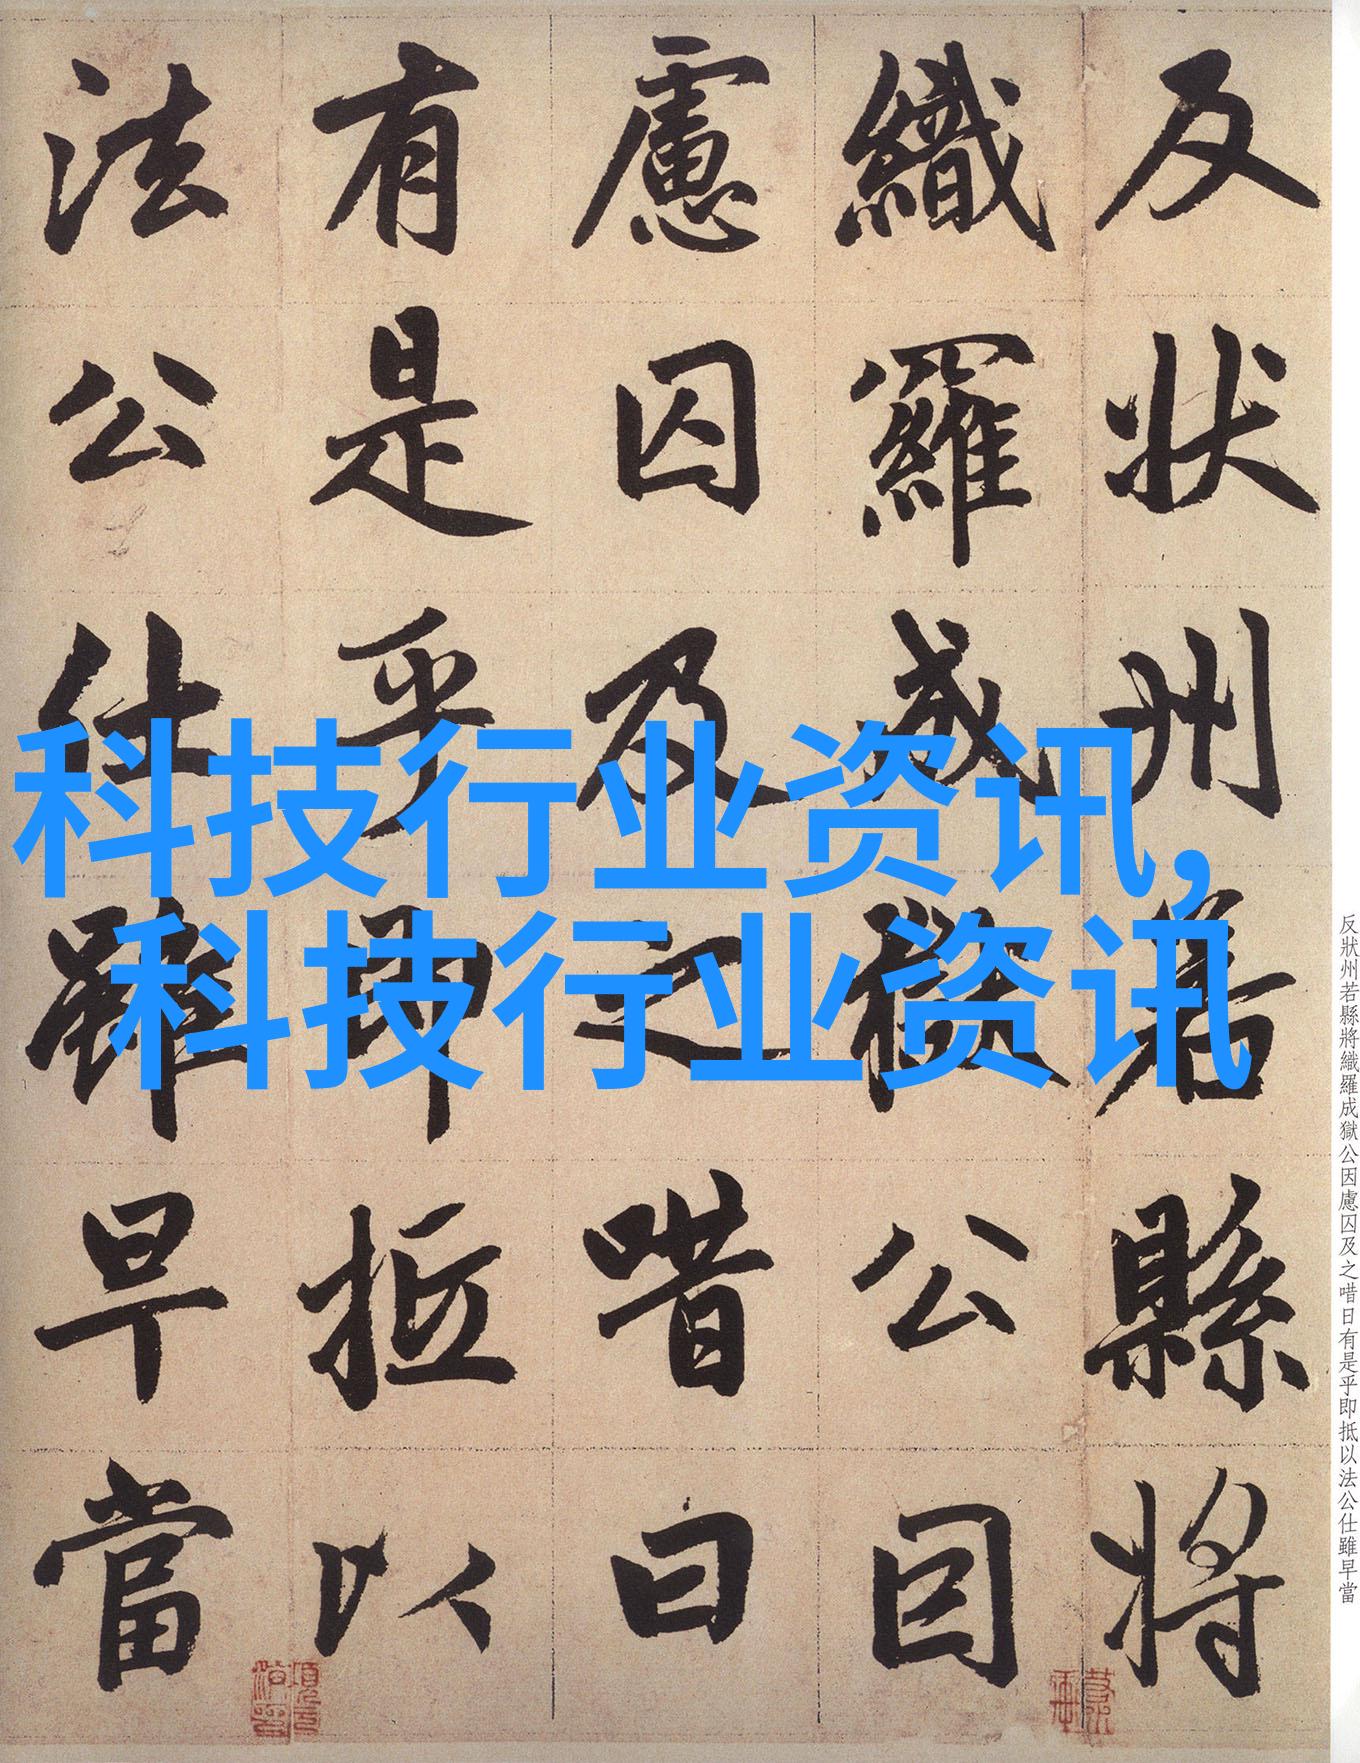 反状州若縣將
織羅成獄公因
慮囚及之唶曰
有是乎即抵以
法公仕雖早當
科技行业资讯,
科技行业资讯
反狀州若縣將織羅成獄公因慮囚及之唶日有是乎即抵以法公仕雖早當